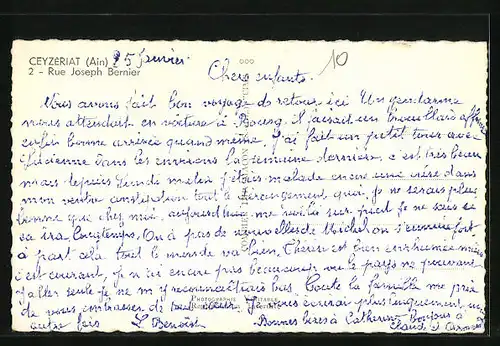 CEYZÉRIAT (Ain) 25 janvier
2 - Rue Joseph Bernier
Chers enfants.
Nous avons fait bon voyage de retour, ici Un gendarme
nous attendait en voiture à Bourg. Il faisait un brouillard affreux
enfin bonne arrivée quand même. J'ai fait un petit tour avec
Lucienne dans les environs la semaine dernière, c'est très beau
mais depuis Lundi matin j'étais malade encore une crise dans
mon ventre constipation tout le dérangement quoi, je ne serais plus
bonne que chez moi, aujourd'hui me voilà sur pied je ne sais si
ça ira Longtemps. On a pas de nouvelles de Michel on s'ennuie fort
à part cela tout le monde va bien. Thérèse est bien enrhumée mais
c'est courant, je n'ai encore pas beaucoup vu le pays ne pouvant
aller seule je ne m'y reconnaîtrais pas. Toute la famille me prie
de vous embrasser de tout cœur. Je vous écrirai plus longuement une
autre fois L. Benoist Bonnes bises à Catherine Bonjour à
Claude et
PHOTOGRAPHIE VÉRITABLE